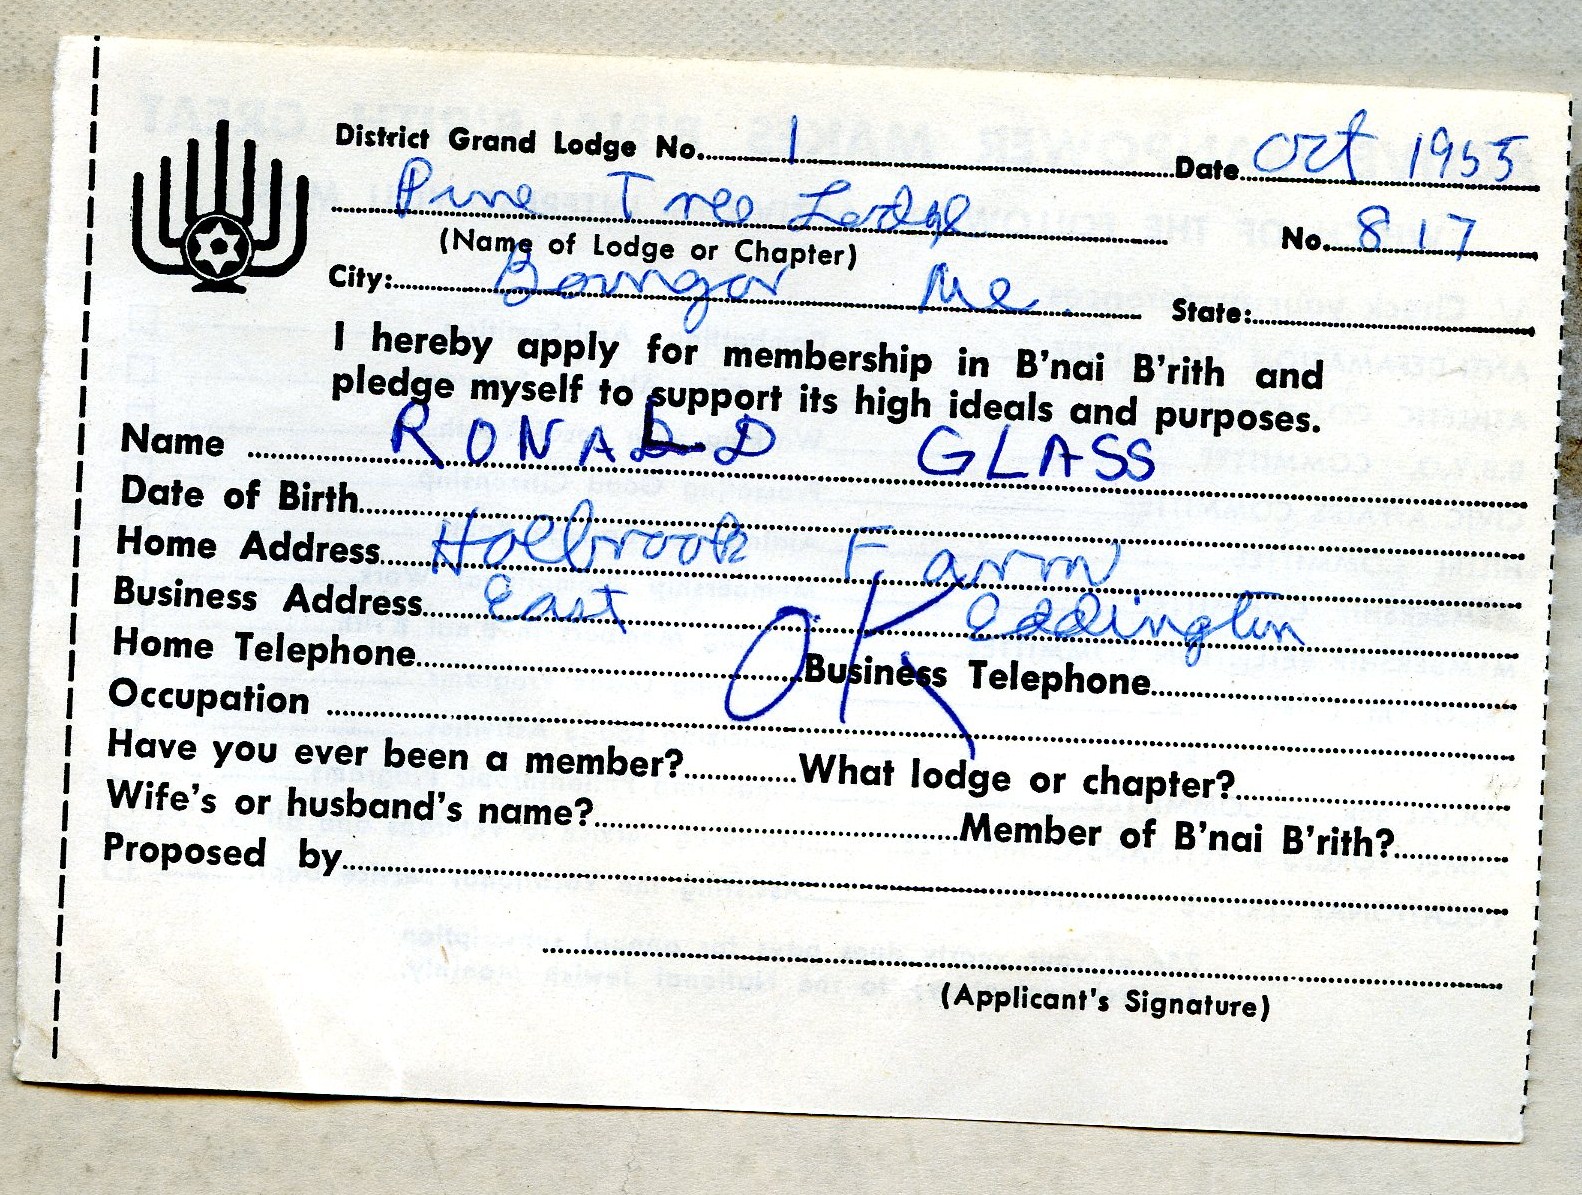 District Grand Lodge No. 1 Date Oct 1955
Pine Tree Lodge No. 817
(Name of Lodge or Chapter)
City: Bangor Me. State:
I hereby apply for membership in B'nai B'rith and
pledge myself to support its high ideals and purposes.
Name RONALD GLASS
Date of Birth
Home Address Holbrook Farm
Business Address East Eddington
Home Telephone OK Business Telephone
Occupation
Have you ever been a member? What lodge or chapter?
Wife's or husband's name? Member of B'nai B'rith?
Proposed by
(Applicant's Signature)